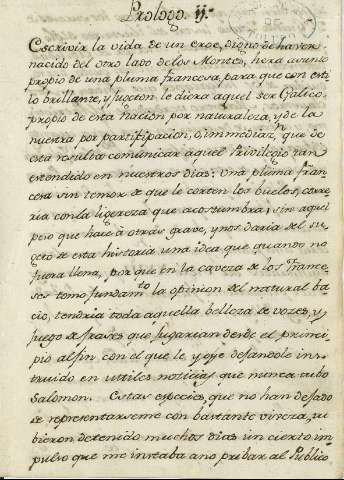 Prologo II.
Escrivir la vida de un eroe, digno de haver
nacido del otro lado de los Montes, hera asunto
propio de una pluma francesa, para que con esti
lo brillante, y jugeton le diera aquel ser Galico,
propio de esta Nacion, por naturaleza, y de la
nuestra por partifipacion, ô immediazn. que de
esta resulta comunicar aquel Privilegio tan
estendido en nuestros dias: Una pluma fran
cesa sin temor de que le corten los buelos, corre
ria con la ligereza que acostumbra; sin aquel
peso que haze à otras grave, y nos daria del su
geto de esta historia una idea que quando no
fuera llena, por que en la caveza de los France
ses tomo fundamto. la opinion del natural ba
cio, tendria toda aquella belleza de vozes, y
juego de frases que jugarian desde el princi
pio al fin con el que le y oye dejandole ins
truido en utiles noticias que nunca tubo
Salomon. Estas especies, que no han dejado
de representarseme con bastante viveza, tu
bieron detenido muchos dias un cierto im
pulso que me instaba a no pribar al Publico